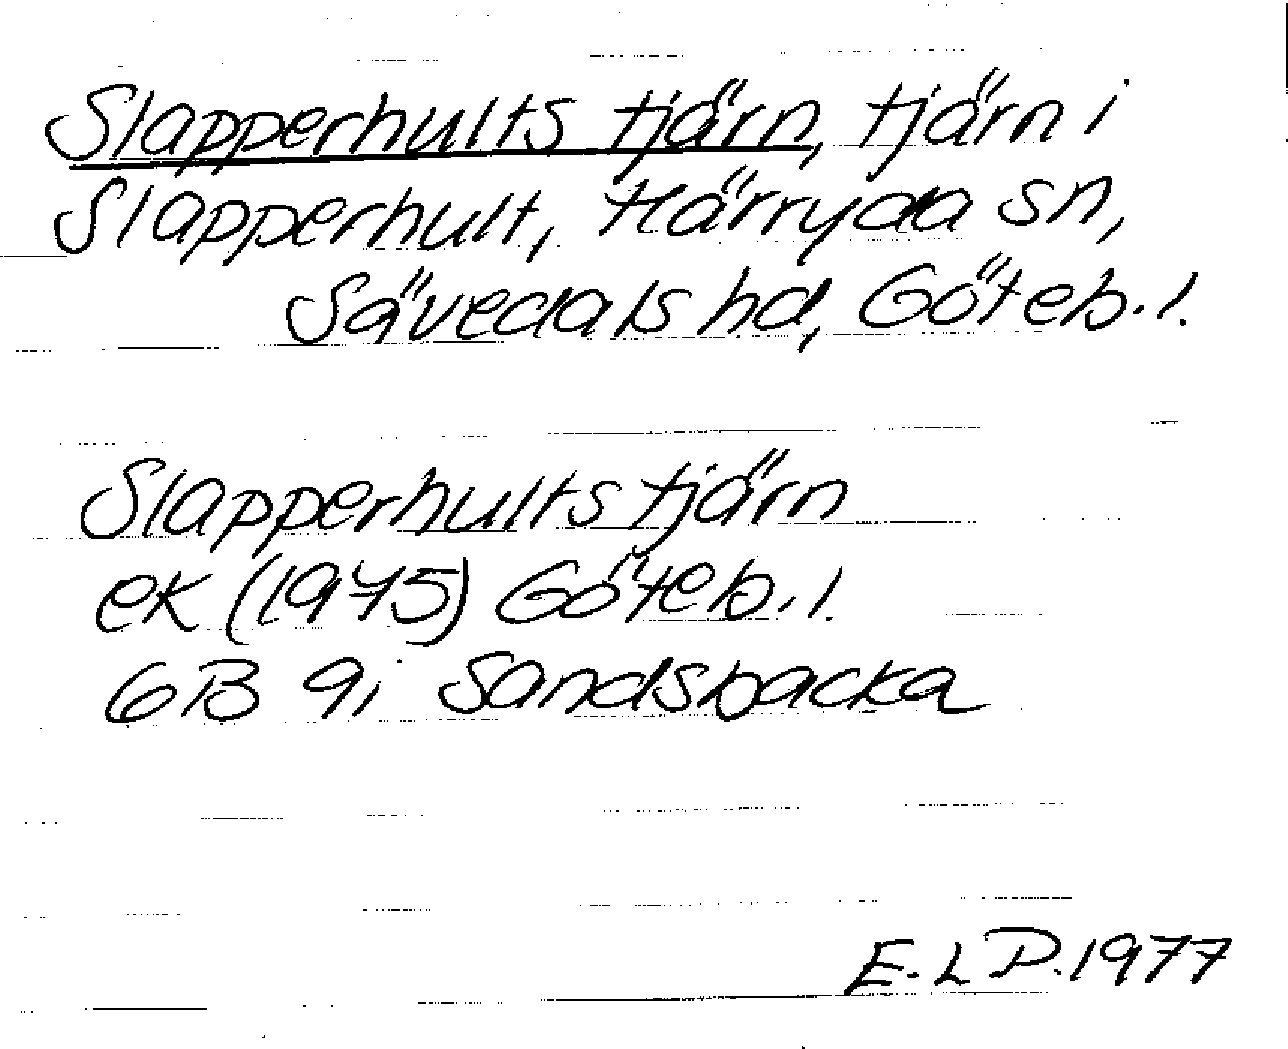 Slapperhults tjärn, tjärn i
Slapperhult, Härryda sn,
Sävedals hd, Göteb. l.
Slapperhults tjärn
ek (1975) Göteb. l.
6B 9i Sandsbacka
E. L P. 1977